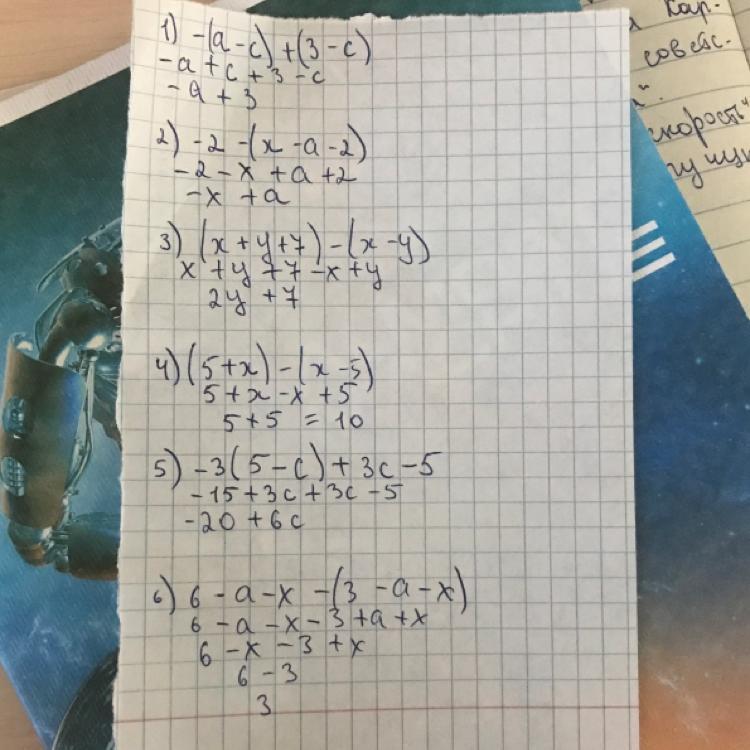 1) -(a-c)+(3-c)
-a+c+3-c
-a+3
2) -2-(x-a-2)
-2-x+a+2
-x+a
3) (x+y+7)-(x-y)
x+y+7-x+y
2y+7
4) (5+x)-(x-5)
5+x-x+5
5+5=10
5) -3(5-c)+3c-5
-15+3c+3c-5
-20+6c
6) 6-a-x-(3-a-x)
6-a-x-3+a+x
6-x-3+x
6-3
3
Кар-
советс-
скорость"